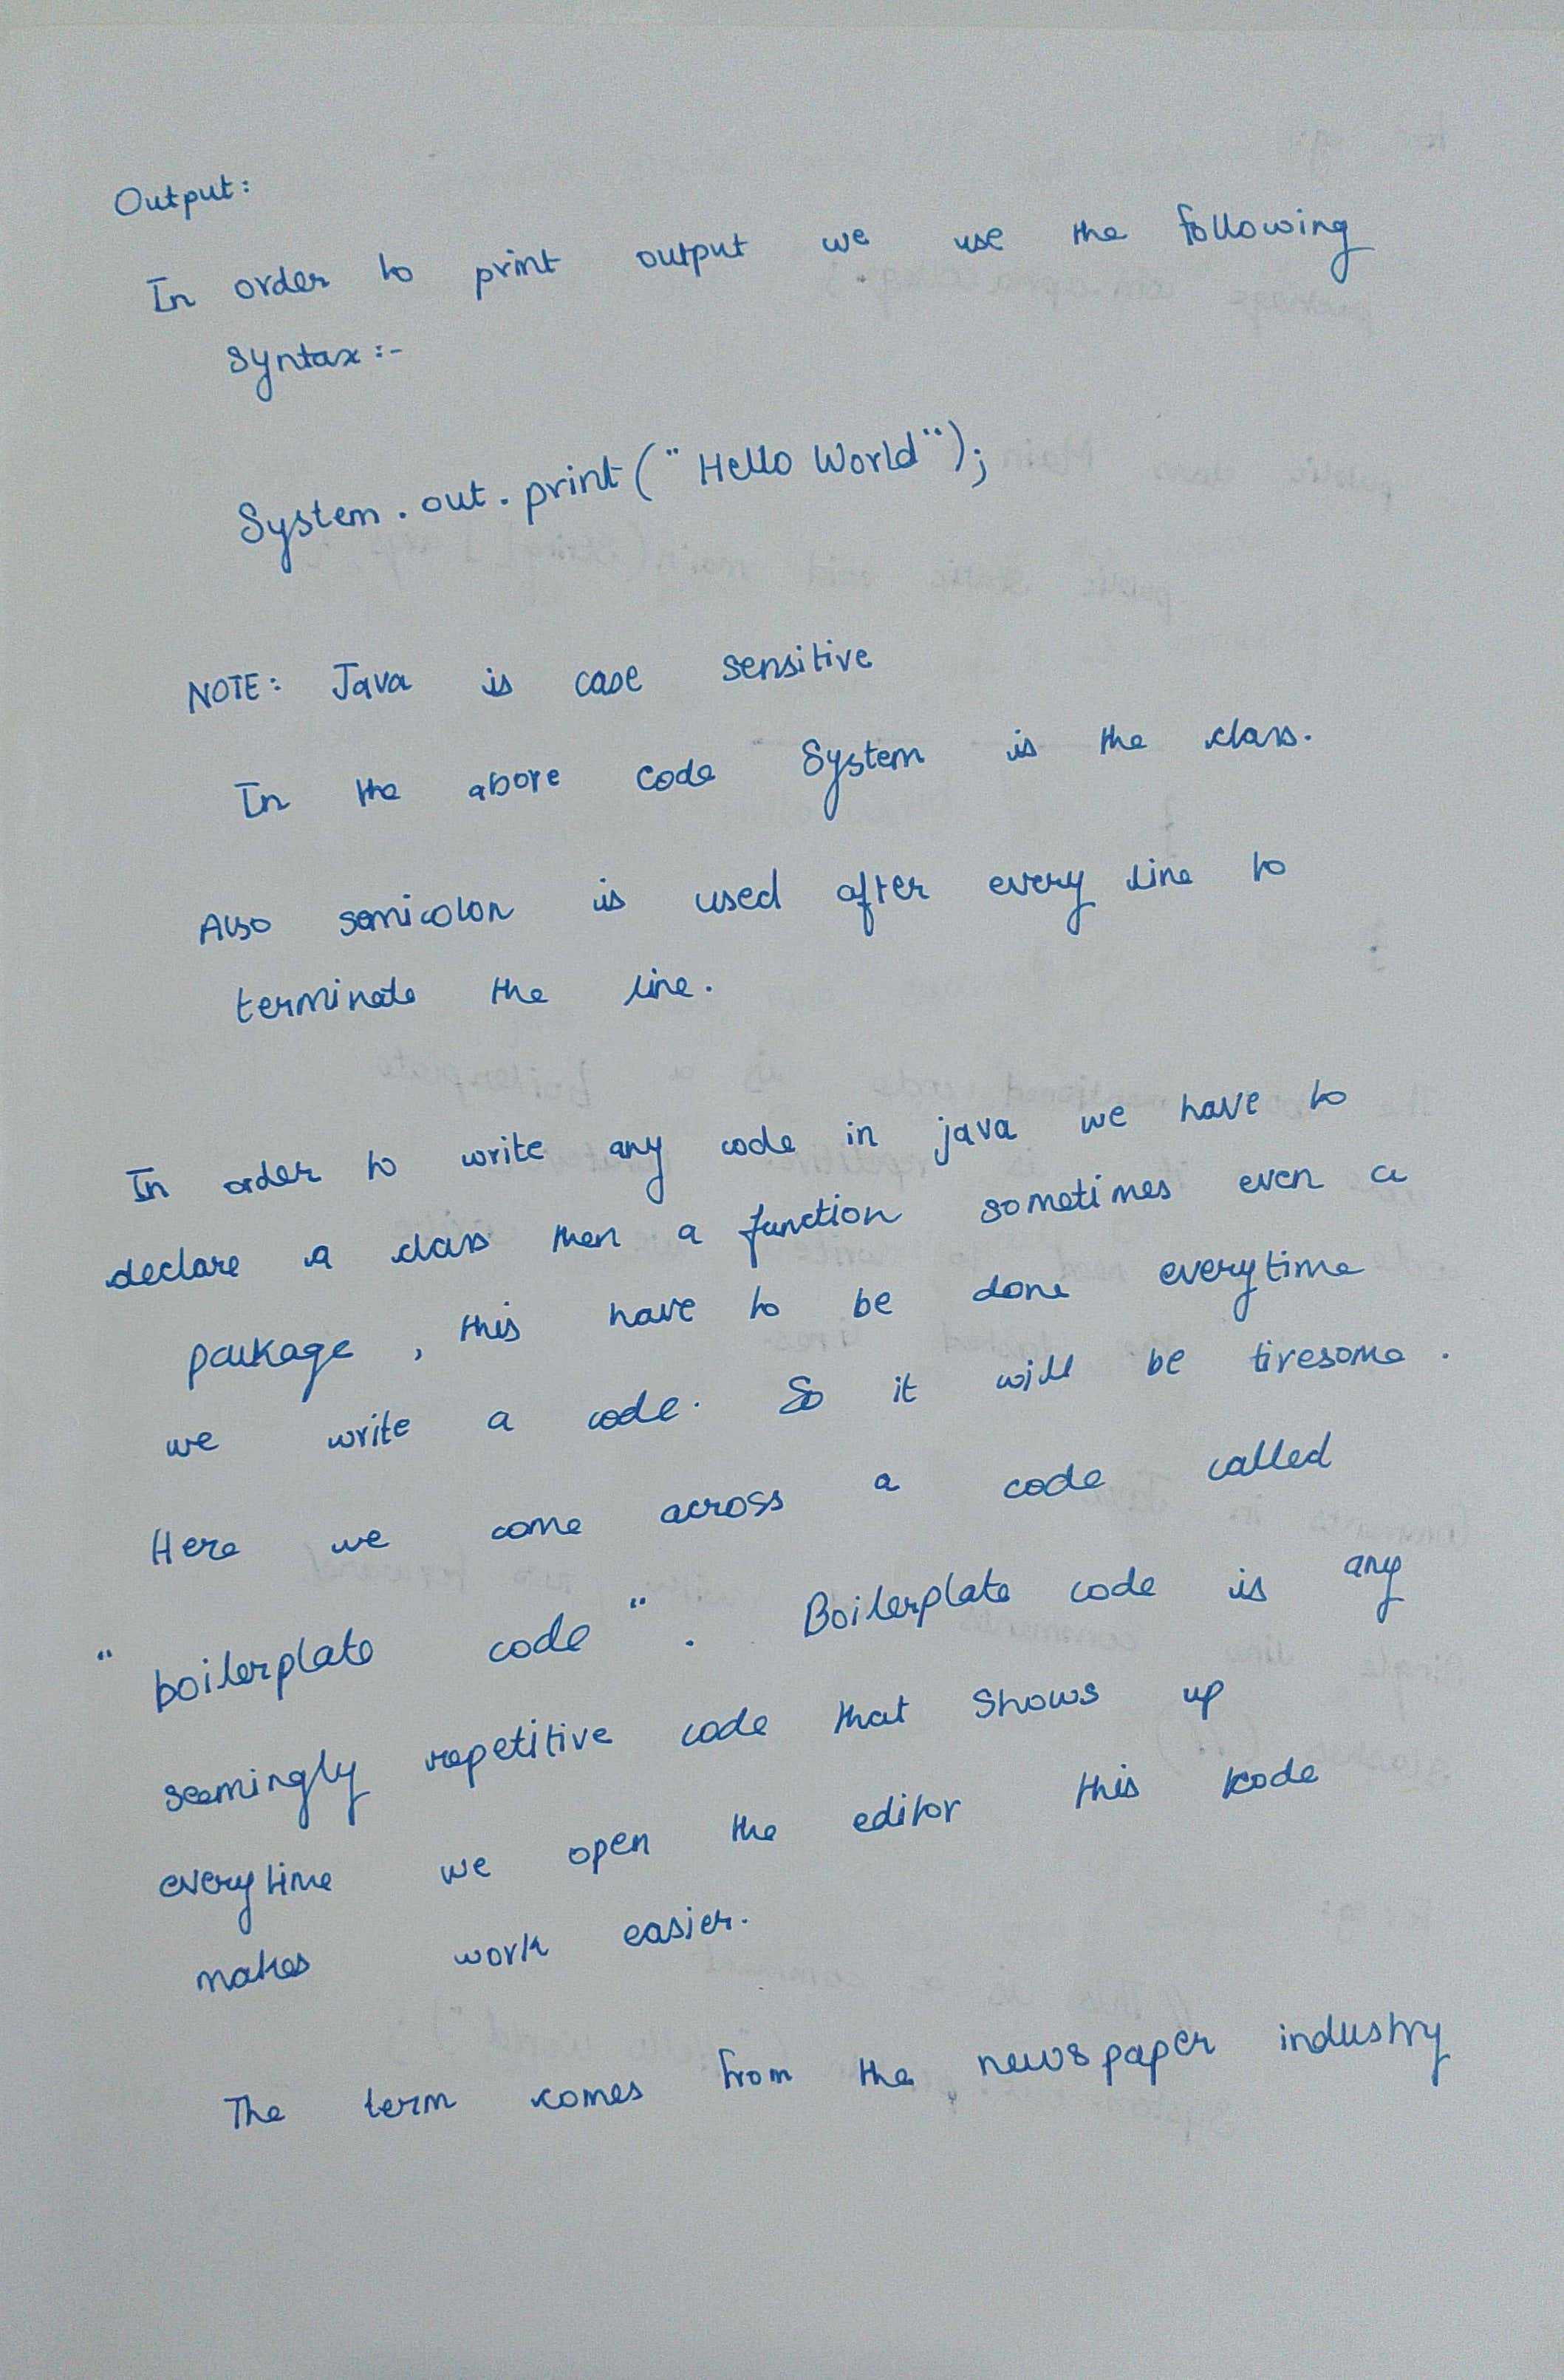 Output:
In order to print output we use the following
syntax :-
System.out.print("Hello World");
NOTE: Java is case sensitive
In the above code System is the class.
Also semicolon is used after every line to
terminate the line.
In order to write any code in java we have to
declare a class then a function sometimes even a
package, this have to be done everytime
we write a code. So it will be tiresome.
Here we come across a code called
"boilerplate code". Boilerplate code is any
seemingly repetitive code that shows up
everytime we open the editor this code
makes work easier.
The term comes from the newspaper industry